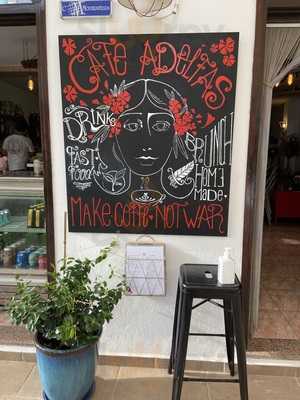 CAFE ADELITAS
DRINKS
FAST
FOOD
BRUNCH
HOME
MADE
MAKE COFFE NOT WAR